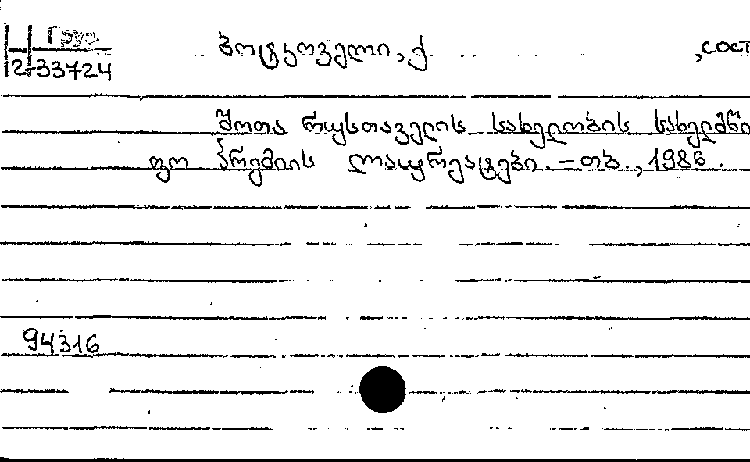 Груз
2-33724
ბოტკოველი, ქ. ,сост
შოთა რუსთაველის სახელობის სახელმწი
ფო პრემიის ლაურეატები. – თბ., 1986.
94316